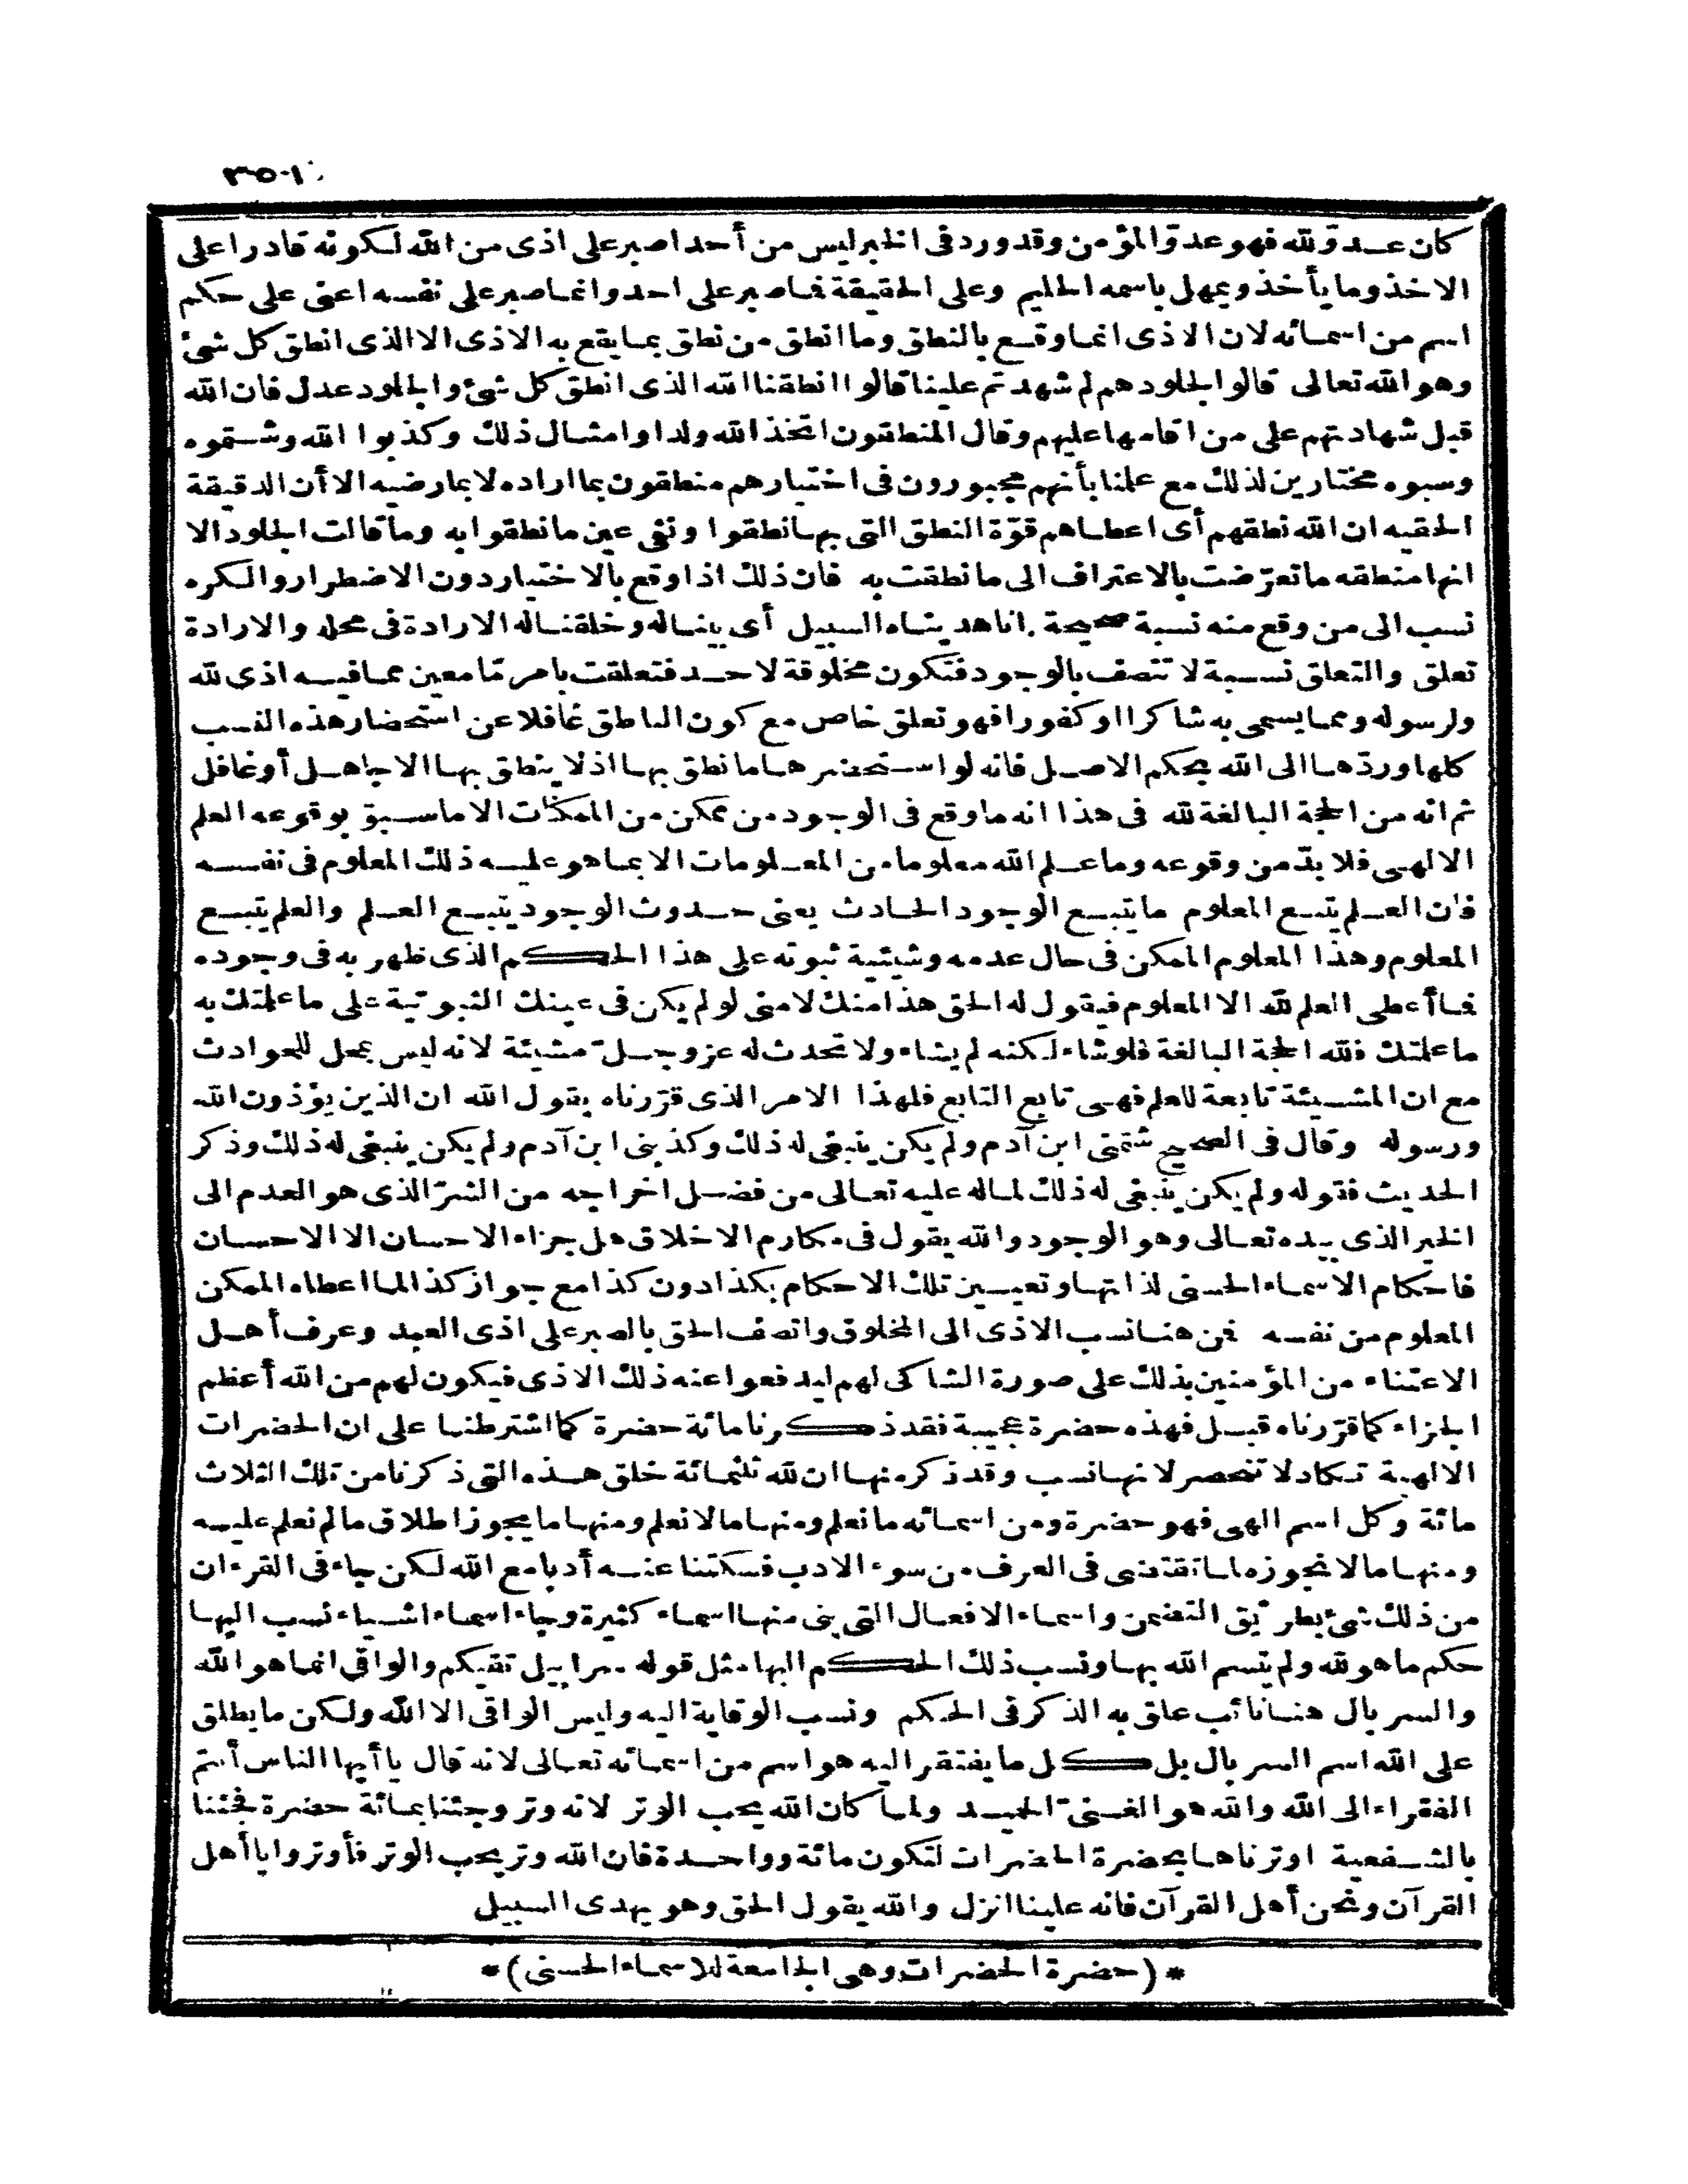 ٣٥٠١
كان عدوّ لله فهو عدوّ المؤمن وقد ورد فى الخبر ليس من أحد اصبر على اذى من الله لكونه قادرا على
الاخذ وما يأخذ ويمهل باسمه الحليم وعلى الحقيقة فما صبر على احد وانما صبر على نفسه اعنى على حكم
اسم من اسمائه لان الاذى انما وقع بالنطق وما انطق من نطق بما يقع به الاذى الا الذى انطق كل شئ
وهو الله تعالى قالوا لجلودهم لم شهدتم علينا قالوا انطقنا الله الذى انطق كل شئ والجلود عدل فان الله
قبل شهادتهم على من اقامها عليهم وقال المنطقون اتخذ الله ولدا وامثال ذلك وكذبوا الله وشتموه
وسبوه مختارين لذلك مع علمنا بأنهم مجبورون فى اختيارهم منطقون بما اراده لا بما رضيه الا أن الدقيقة
الخفيه ان الله نطقهم أى اعطاهم قوّة النطق التى بها نطقوا ونفى عين ما نطقوا به وما قالت الجلود الا
انها منطقه ما تعرّضت بالاعتراف الى ما نطقت به فان ذلك اذا وقع بالاختيار دون الاضطرار والكره
نسب الى من وقع منه نسبة صحيحة انا هديناه السبيل أى بيناله وخلقنا له الارادة فى محله والارادة
تعلق والتعلق نسبة لا تتصف بالوجود فتكون مخلوقة لاحد فتعلقت بامر مّا معين مما فيه اذى لله
ولرسوله ومما يسمى به شاكرا او كفورا فهو تعلق خاص مع كون الناطق غافلا عن استحضار هذه النسب
كلها وردّها الى الله بحكم الاصل فانه لو استحضرها ما نطق بها اذ لا ينطق بها الا جاهل أو غافل
ثم انه من الحجة البالغة لله فى هذا انه ما وقع فى الوجود من ممكن من الممكنات الا ما سبق بوقوعه العلم
الالهى فلا بدّ من وقوعه وما علم الله معلوما من المعلومات الا بما هو عليه ذلك المعلوم فى نفسه
فان العلم يتبع المعلوم ما يتبع الوجود الحادث يعنى حدوث الوجود يتبع العلم والعلم يتبع
المعلوم وهذا المعلوم الممكن فى حال عدمه وشيئية ثبوته على هذا الحكم الذى ظهر به فى وجوده
فما أعطى العلم لله الا المعلوم فيقول له الحق هذا منك لا منى لو لم يكن فى عينك الثبوتية على ما علمتك به
ما علمتك فلله الحجة البالغة فلو شاء لكنه لم يشاء ولا تحدث له عز وجل مشيئة لانه ليس بمحل للحوادث
مع ان المشيئة تابعة للعلم فهى تابع التابع فلهذا الامر الذى قرّرناه يقول الله ان الذين يؤذون الله
ورسوله وقال فى الصحيح شتمنى ابن آدم ولم يكن ينبغى له ذلك وكذبنى ابن آدم ولم يكن ينبغى له ذلك وذكر
الحديث فقوله ولم يكن ينبغى له ذلك لما له عليه تعالى من فضل اخراجه من الشرّ الذى هو العدم الى
الخير الذى بيده تعالى وهو الوجود والله يقول فى مكارم الاخلاق هل جزاء الاحسان الا الاحسان
فاحكام الاسماء الحسنى لذاتها وتعيين تلك الاحكام بكذا دون كذا مع جواز كذا لما اعطاه الممكن
المعلوم من نفسه فمن هنا نسب الاذى الى المخلوق واتصف الحق بالصبر على اذى العبد وعرف أهل
الاعتناء من المؤمنين بذلك على صورة الشاكى لهم ليدفعوا عنه ذلك الاذى فيكون لهم من الله أعظم
الجزاء كما قرّرناه قبل فهذه حضرة عجيبة فقد ذكرنا مائة حضرة كما اشترطنا على ان الحضرات
الالهية تكاد لا تنحصر لانها نسب وقد ذكر منها ان لله ثلثمائة خلق هذه التى ذكرنا من تلك الثلاث
مائة وكل اسم الهى فهو حضرة ومن اسمائه ما نعلم ومنها ما لا نعلم ومنها ما يجوز اطلاق ما لم نعلم عليه
ومنها ما لا نجوزه لما تقتضى فى العرف من سوء الادب فسكتنا عنه أدبا مع الله لكن جاء فى القرءان
من ذلك شئ بطريق التضمن واسماء الافعال التى بنى منها اسماء كثيرة وجاء اسماء اشياء نسب اليها
حكم ما هو لله ولم يتسم الله بها ونسب ذلك الحكم اليها مثل قوله سرابيل تقيكم والواقى انما هو الله
والسربال هنا نائب علق به الذكر فى الحكم ونسب الوقاية اليه وليس الواقى الا الله ولكن ما يطلق
على الله اسم السربال بل كل ما يفتقر اليه هو اسم من اسمائه تعالى لانه قال يا أيها الناس أنتم
الفقراء الى الله والله هو الغنىّ الحميد ولما كان الله يحب الوتر لانه وتر وجئنا بمائة حضرة فجئنا
بالشفعية اوترناها بحضرة الحضرات لتكون مائة وواحدة فان الله وتر يحب الوتر فأوتروا يا أهل
القرآن ونحن أهل القرآن فانه علينا انزل والله يقول الحق وهو يهدى السبيل
* (حضرة الحضرات وهى الجامعة للاسماء الحسنى) *